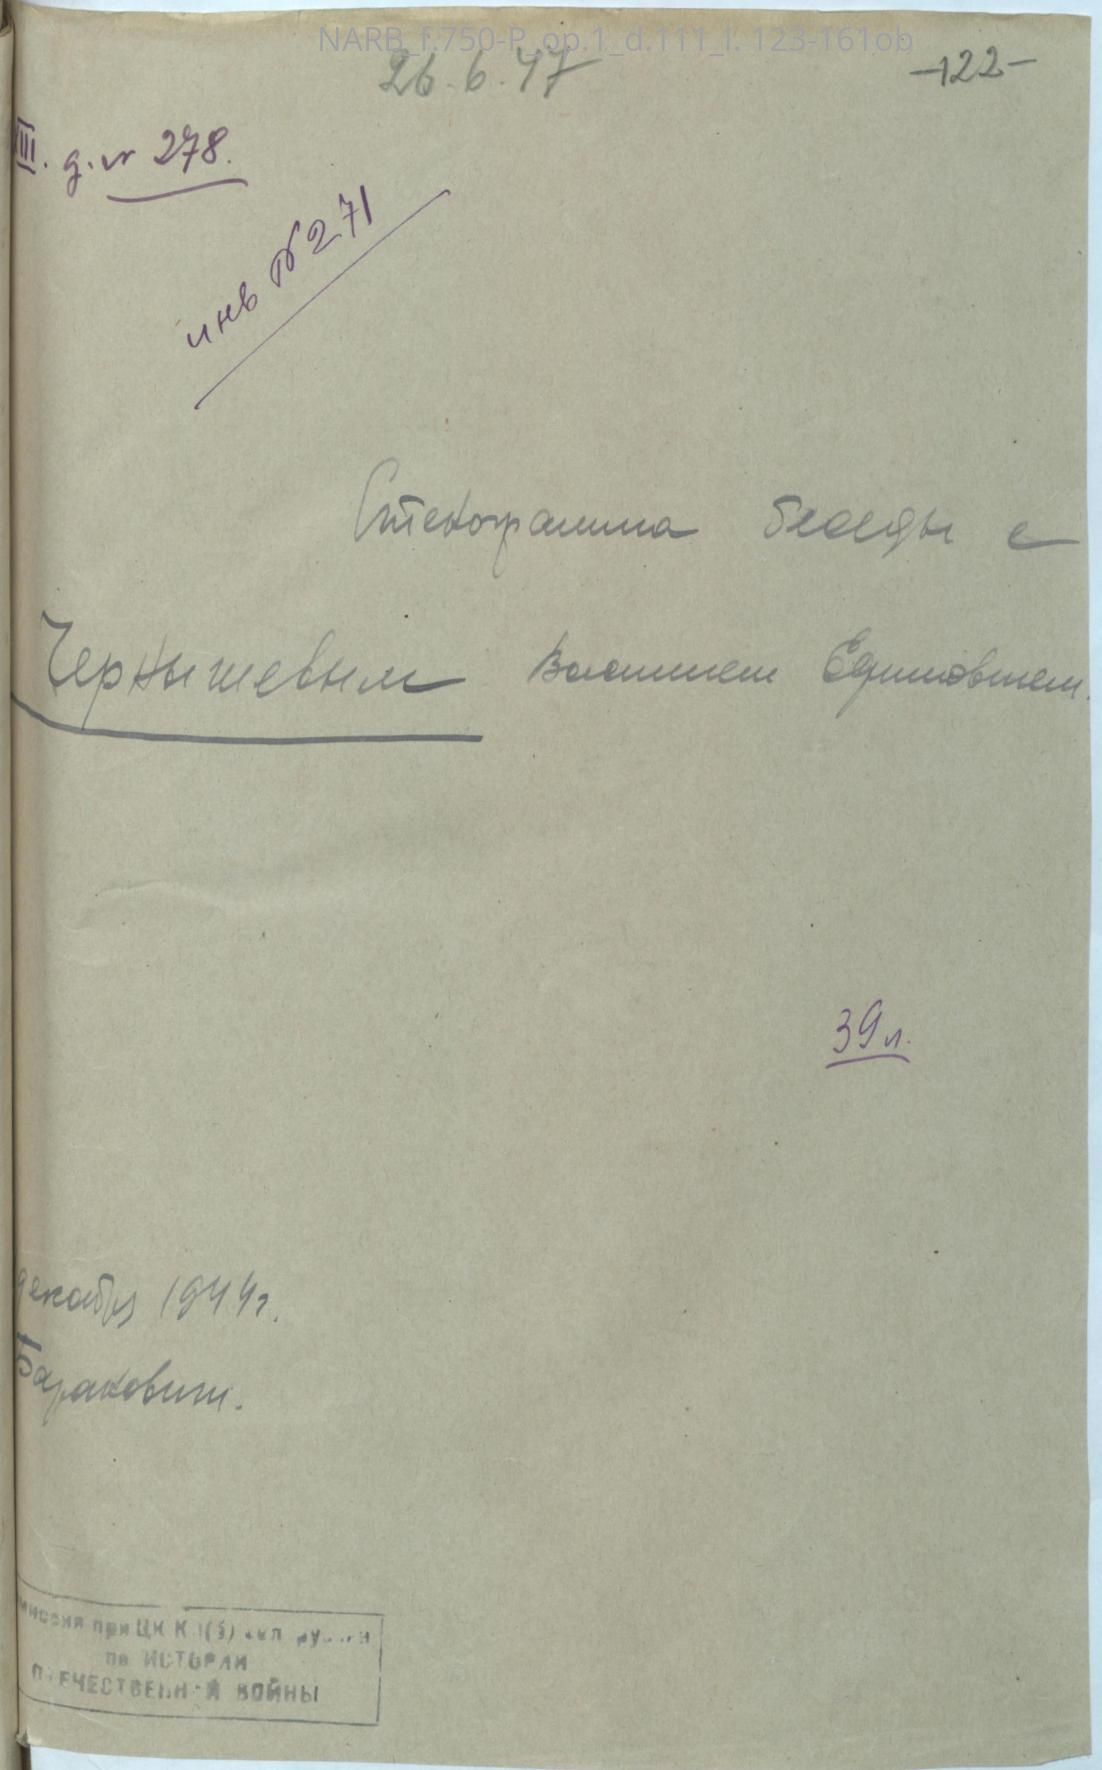 NARB_f.750-P_op.1_d.111_l. 123-161ob
26.6.47
-122-
III. д. № 278.
инв № 271
Стенограмма беседы с
Чернышевым Василием Ефимовичем.
39 л.
декабрь 1944 г.
Баракович.
миссия при ЦК К
по ИСТОРИИ
ОТЕЧЕСТВЕННОЙ ВОЙНЫ